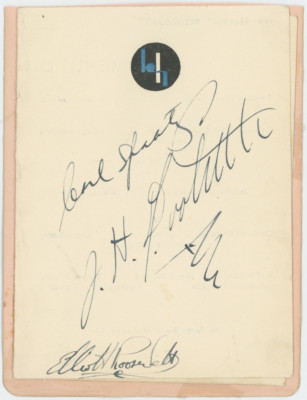 bh
Carl Spaatz
J. H. Doolittle
Elliott Roosevelt